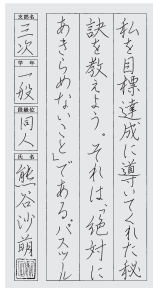 私を目標達成に導いてくれた秘
訣を教えよう。それは、「絶対に
あきらめないこと」である。パスツール
支部名
三次
学年
一般
段級位
同人
氏名
熊谷沙萌